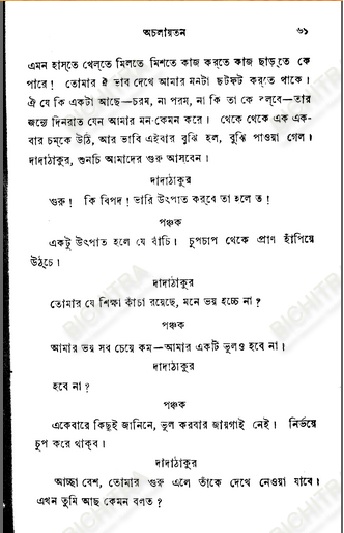 অচলায়তন
৬১
এমন হাস্‌তে খেল্‌তে মিলতে মিশতে কাজ কর্‌তে কাজ ছাড়্‌তে কে
পারে! তোমার ঐ ভাব দেখে আমার মনটা ছটফট কর্‌তে থাকে।
ঐ যে কি একটা আছে—চরম, না পরম, না কি তা কে বল্‌বে—তার
জন্যে দিনরাত যেন আমার মন কেমন করে। থেকে থেকে এক এক-
বার চম্‌কে উঠি, আর ভাবি এইবার বুঝি হল, বুঝি পাওয়া গেল।
দাদাঠাকুর, শুনচি আমাদের গুরু আসবেন।
দাদাঠাকুর
গুরু! কি বিপদ! ভারি উৎপাত কর্‌বে তা হলে ত!
পঞ্চক
একটু উৎপাত হলে যে বাঁচি। চুপচাপ থেকে প্রাণ হাঁপিয়ে
উঠ্‌চে।
দাদাঠাকুর
তোমার যে শিক্ষা কাঁচা রয়েছে, মনে ভয় হচ্চে না?
পঞ্চক
আমার ভয় সব চেয়ে কম—আমার একটি ভুলও হবে না।
দাদাঠাকুর
হবে না?
পঞ্চক
একেবারে কিছুই জানিনে, ভুল করবার জায়গাই নেই। নির্ভয়ে
চুপ করে থাক্‌ব।
দাদাঠাকুর
আচ্ছা বেশ, তোমার গুরু এলে তাঁকে দেখে নেওয়া যাবে।
এখন তুমি আছ কেমন বলত?
BICHITRA